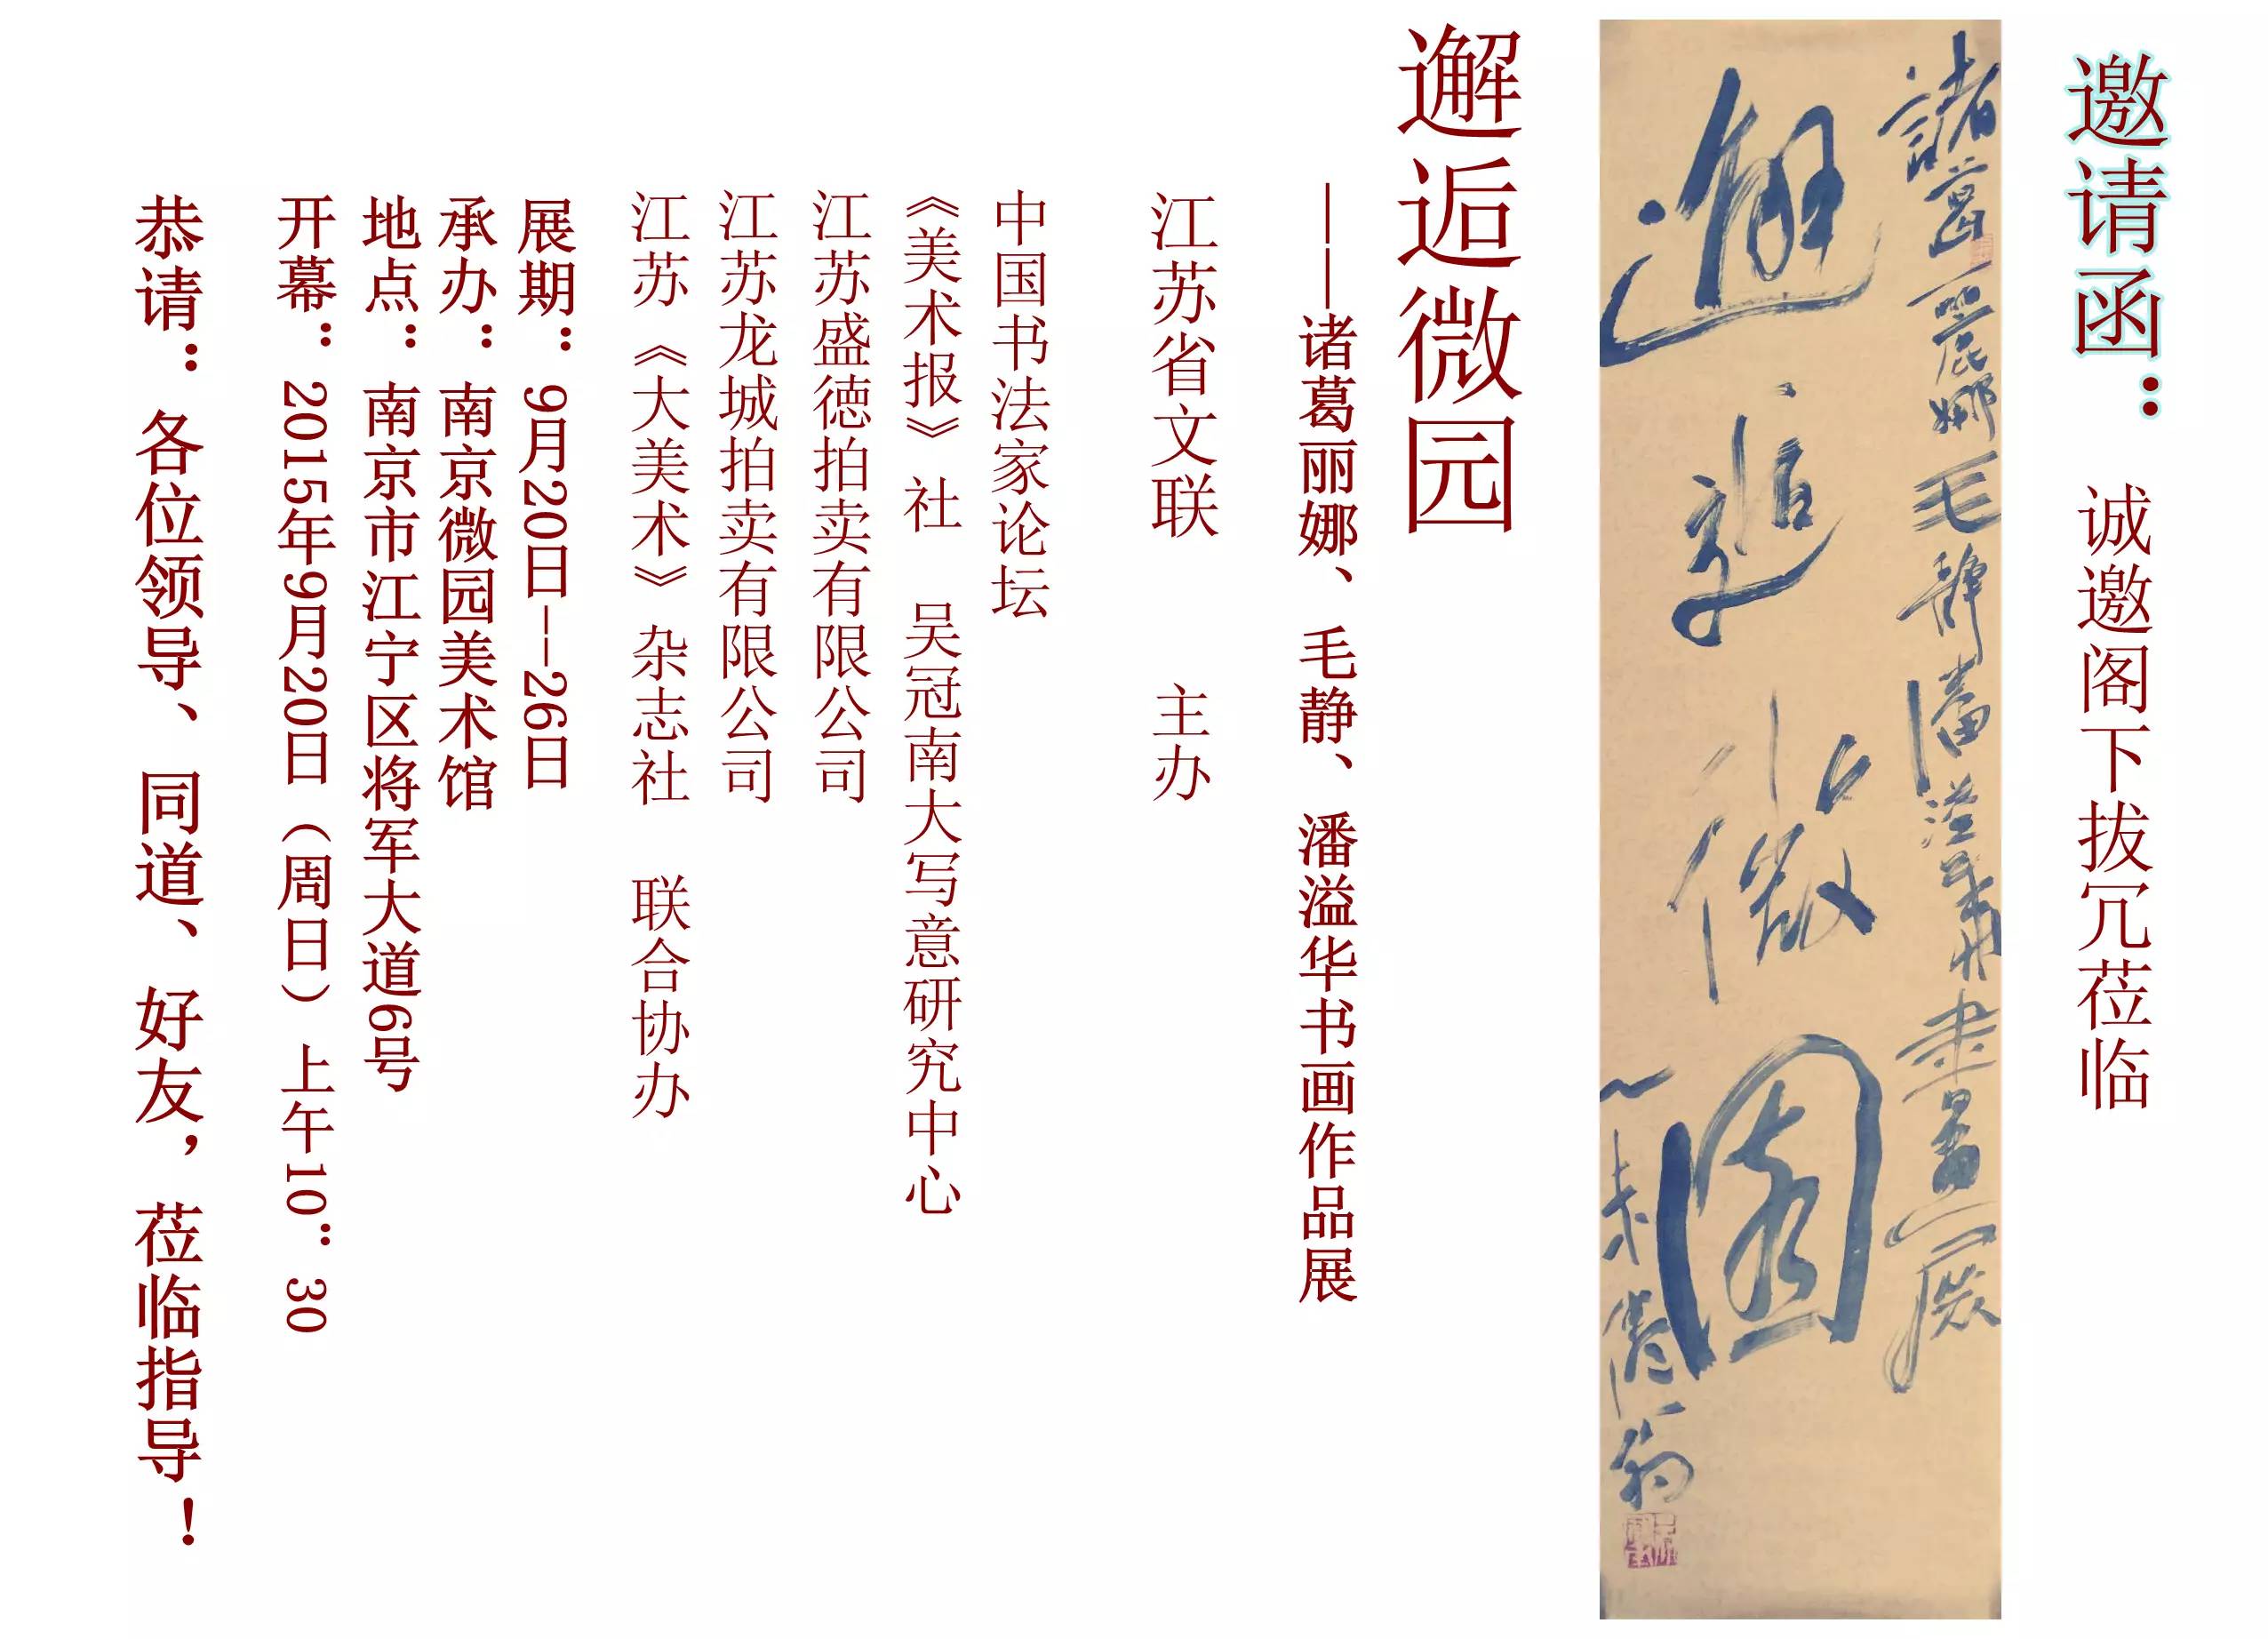 邀请函： 诚邀阁下拔冗莅临
諸葛麗娜毛静潘溢華書畫展
邂逅微園
邂逅微园
——诸葛丽娜、毛静、潘溢华书画作品展
江苏省文联 主办
中国书法家论坛
《美术报》社 吴冠南大写意研究中心
江苏盛德拍卖有限公司
江苏龙城拍卖有限公司
江苏《大美术》杂志社 联合协办
展期：9月20日--26日
承办：南京微园美术馆
地点：南京市江宁区将军大道6号
开幕：2015年9月20日（周日）上午10：30
恭请：各位领导、同道、好友，莅临指导！